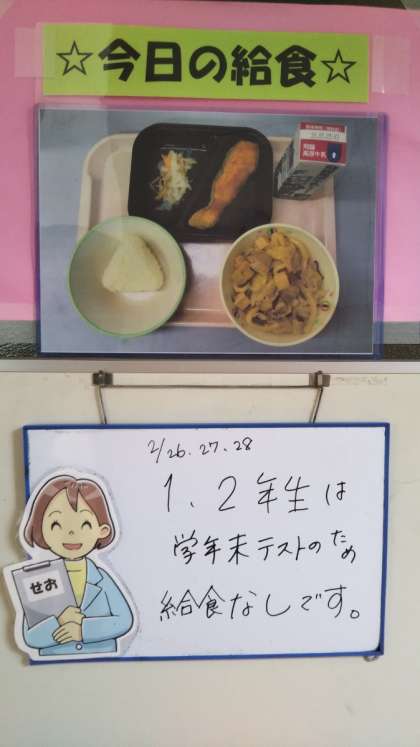 ☆今日の給食☆
2/26.27.28
1、2年生は
学年末テストのため
給食なしです。
せお